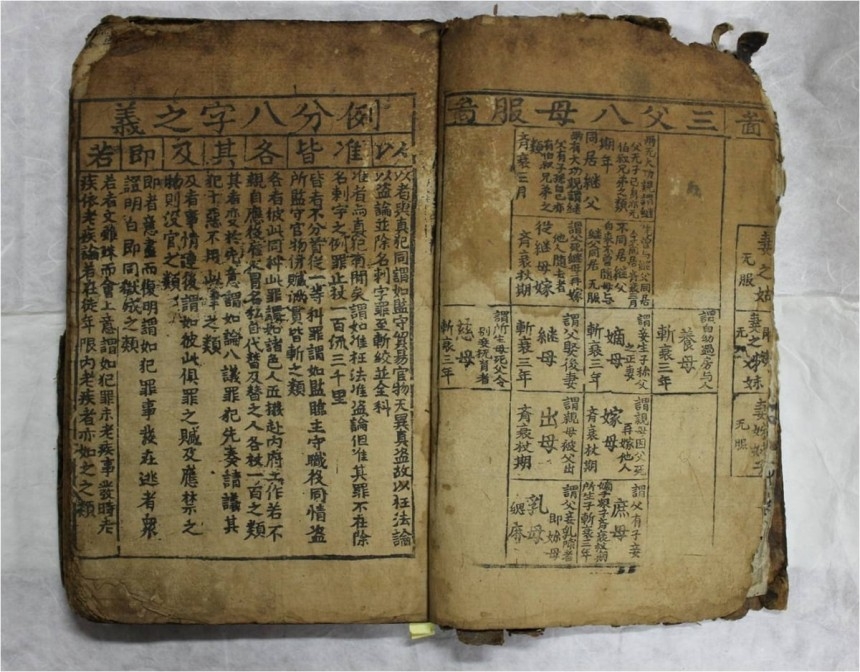 啚
妻之姑
无服
妻之姉妹
无
无服
三父八母服啚
謂自幼過房与人
養母
斬衰三年
同居継父
期年
齊衰三月
不同居継父
无服
謂父死継母再嫁
他人隨去者
從継母嫁
齊衰杖期
謂妾生子稱父
之正妻
嫡母
斬衰三年
謂父娶後妻
継母
斬衰三年
謂所生母死父令
別妾撫育者
慈母
斬衰三年
謂親母因父死
再嫁他人
嫁母
齊衰杖期
謂親母被父出
出母
齊衰杖期
謂父有子妾
庶母
嫡子衆子齊衰杖期
所生子斬衰三年
謂父妾乳哺者
即嬭母
乳母
緦麻
例分八字之義
以准皆各其及即若
以者與真犯同謂如監守貿易官物无異真盗故以枉法論
以盗論並除名刺字罪至斬絞並全科
准者與真犯有間矣謂如准枉法准盗論但准其罪不在除
名刺字之例罪止杖一百流三千里
皆者不分首從一等科罪謂如監臨主守職役同情盗
所監守官物併贓滿貫皆斬之類
各者彼此同科此罪謂如諸色人匠撥赴内府工作若不
親自應役雇人冒名私自代替及替之人各杖一百之類
其者变於先意謂如論八議罪犯先奏請議其
犯十惡不用此律之類
及者事情連後謂如彼此俱罪之贓及應禁之
物則没官之類
即者意盡而復明謂如犯罪事發在逃者衆
證明白即同獄成之類
若者文雖殊而會上意謂如犯罪未老疾事發時老
疾依老疾論若在徒年限内老疾者亦如之之類